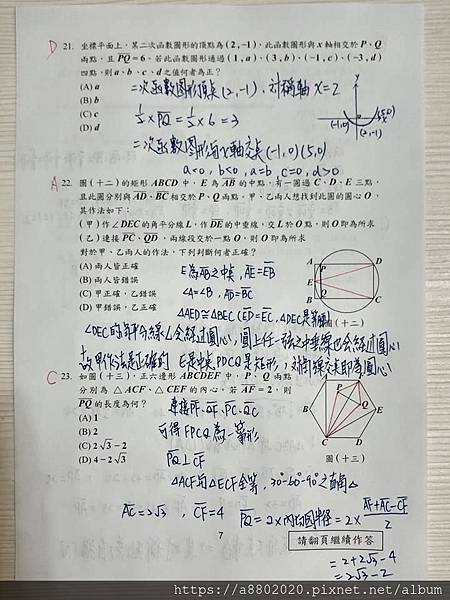 D 21. 坐標平面上，某二次函數圖形的頂點為(2,-1)，此函數圖形與x軸相交於P、Q
兩點，且PQ=6。若此函數圖形通過(1,a)、(3,b)、(-1,c)、(-3,d)
四點，則a、b、c、d之值何者為正？
(A) a
(B) b
(C) c
(D) d
二次函數圖形頂點(2,-1)，對稱軸 x=2
½×PQ=½×6=3
(-1,0) (5,0)
(2,-1)
二次函數圖形與x軸交點(-1,0)(5,0)
a<0, b<0, a=b, c=0, d>0
A 22. 圖(十二)的矩形ABCD中，E為AB的中點，有一圓過C、D、E三點，
且此圓分別與AD、BC相交於P、Q兩點。甲、乙兩人想找到此圓的圓心O，
其作法如下：
(甲)作∠DEC的角平分線L，作DE的中垂線，交L於O點，則O即為所求
(乙)連接PC、QD，兩線段交於一點O，則O即為所求
對於甲、乙兩人的作法，下列判斷何者正確？
(A) 兩人皆正確
(B) 兩人皆錯誤
(C) 甲正確，乙錯誤
(D) 甲錯誤，乙正確
E為AB之中點, AE=EB
∠A=∠B, AD=BC
△AED≅△BEC (ED=EC, △DEC是等腮
A D
P
E
B Q C
圖(十二)
∠DEC的角平分線L會經過圓心，圓上任一弦之中垂線也會經過圓心
故甲作法是正確的 E是中點PDCQ是矩形，對角線交點即為圓心
C 23. 如圖(十三)，正六邊形ABCDEF中，P、Q兩點
分別為△ACF、△CEF的內心。若AF=2，則
PQ的長度為何？
(A) 1
(B) 2
(C) 2√3-2
(D) 4-2√3
連接PF、QF、PC、QC
可得FPCQ為一箏形
PQ⊥CF
△ACF與△ECF全等, 30°-60°-90°之直角△
A F
P
B Q E
C D
圖(十三)
AC=2√3, CF=4 PQ=2×內切圓半徑=2×(AF+AC-CF)/2
=2+2√3-4
=2√3-2
7
請翻頁繼續作答
https://a8802020.pixnet.net/album